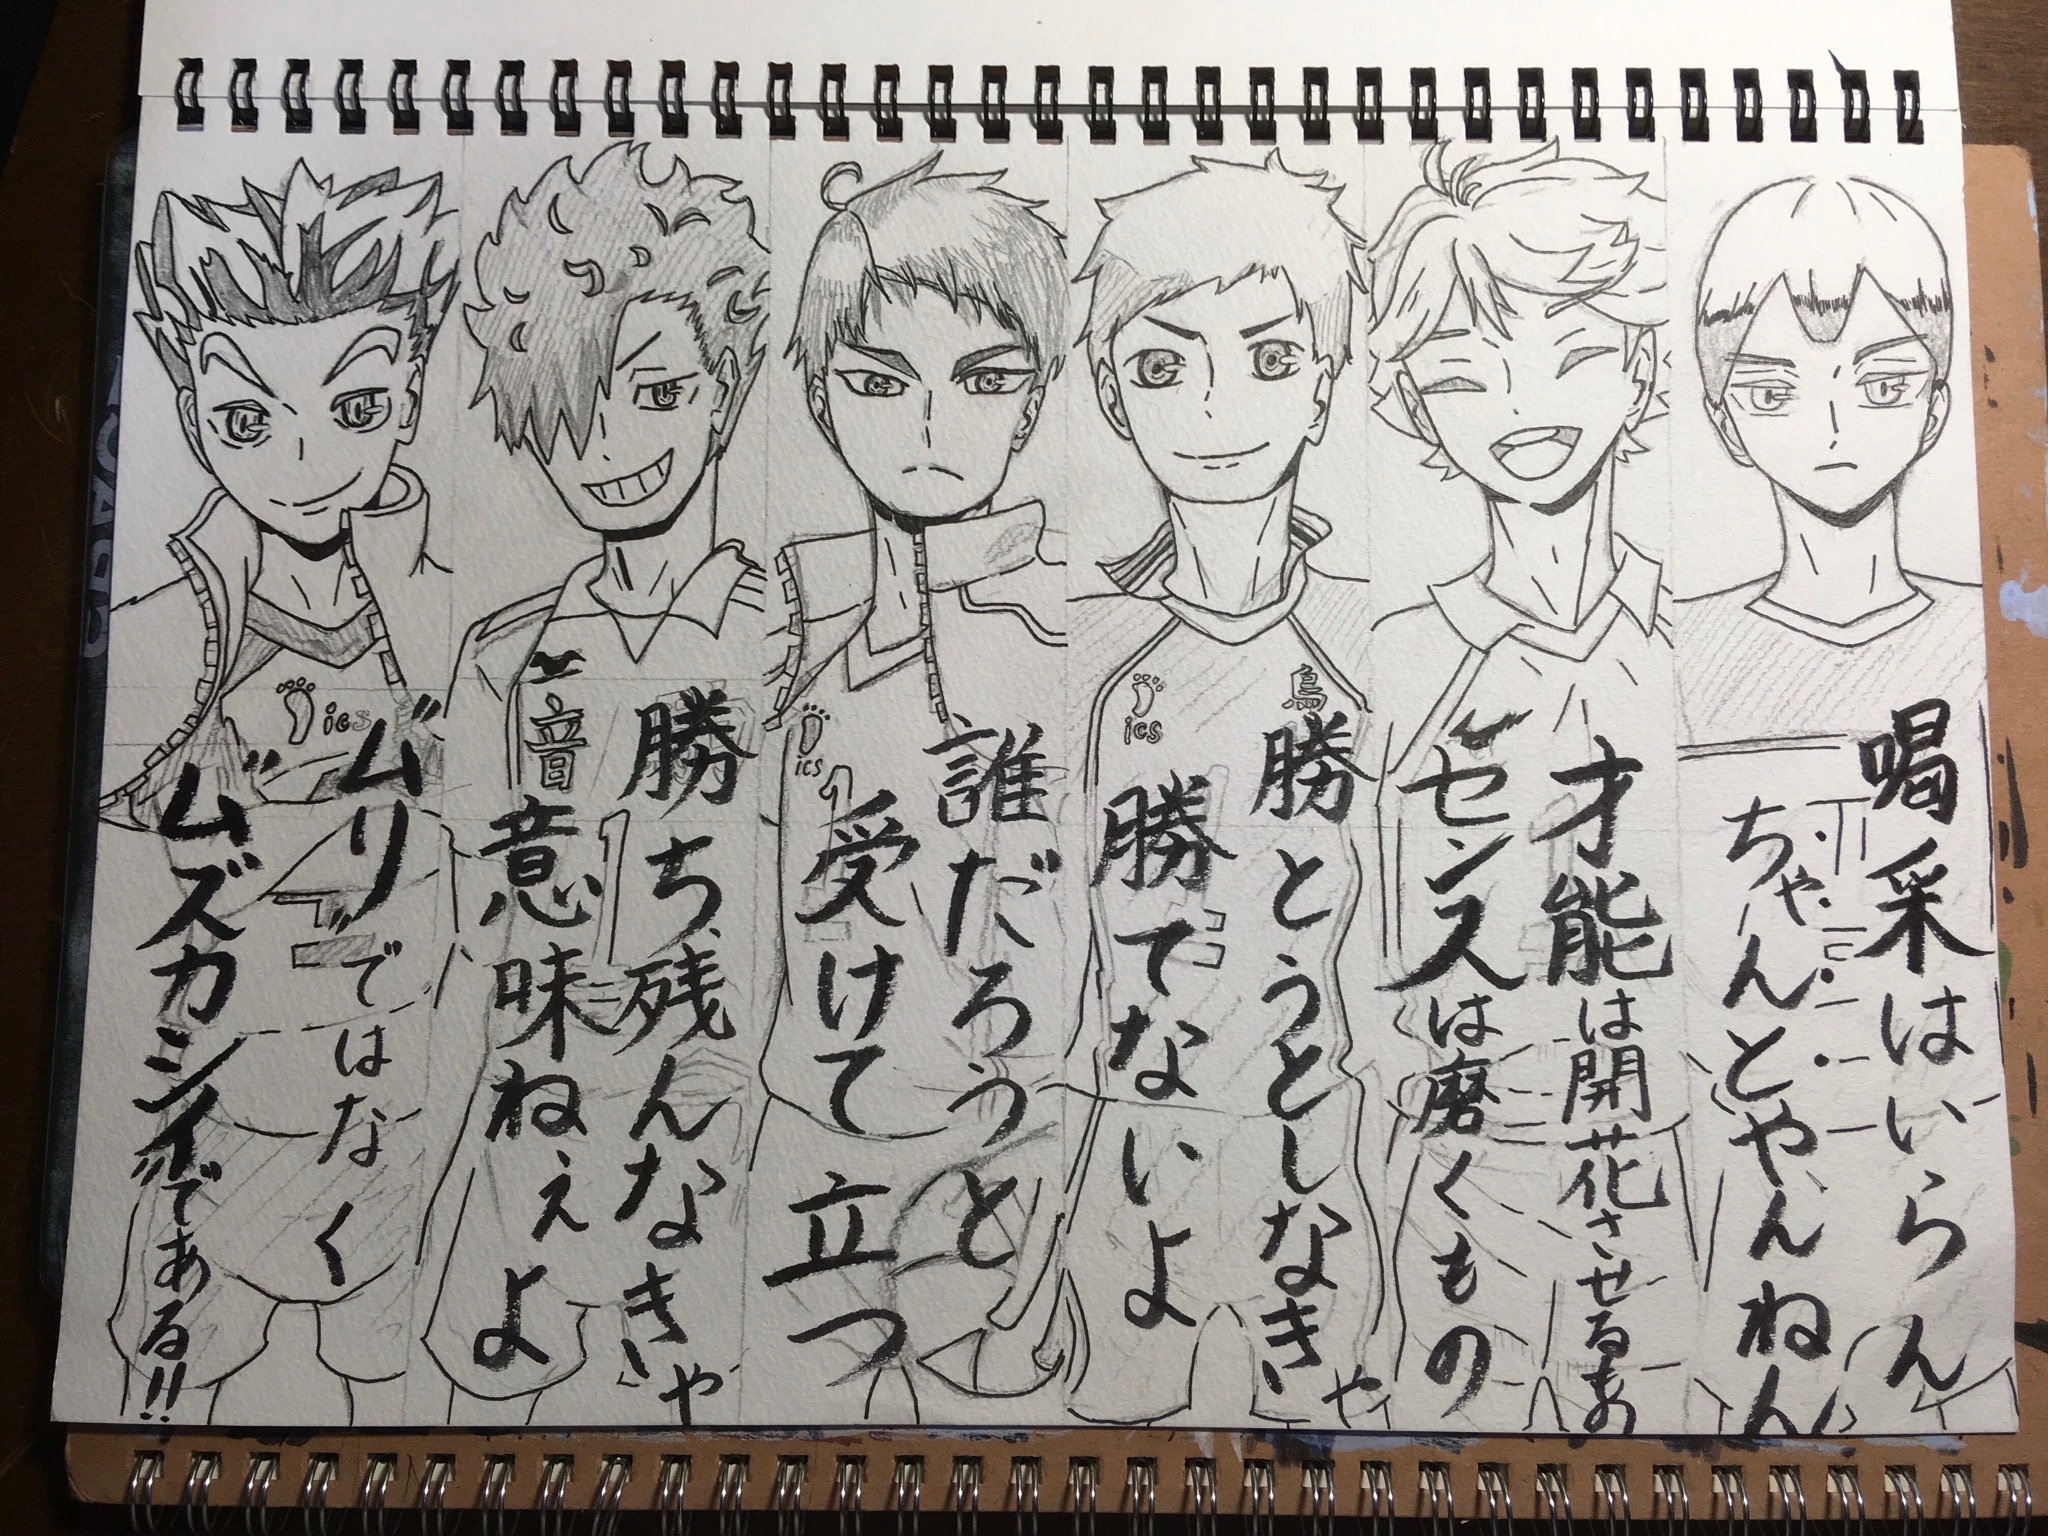 喝采はいらん
ちゃんとやんねん
才能は開花させるもの
センスは磨くもの
烏
ics
勝とうとしなきゃ
勝てないよ
ics
1
誰だろうと
受けて立つ
音
1
勝ち残んなきゃ
意味ねぇよ
ics
"ムリ"ではなく
"ムズカシイ"である!!